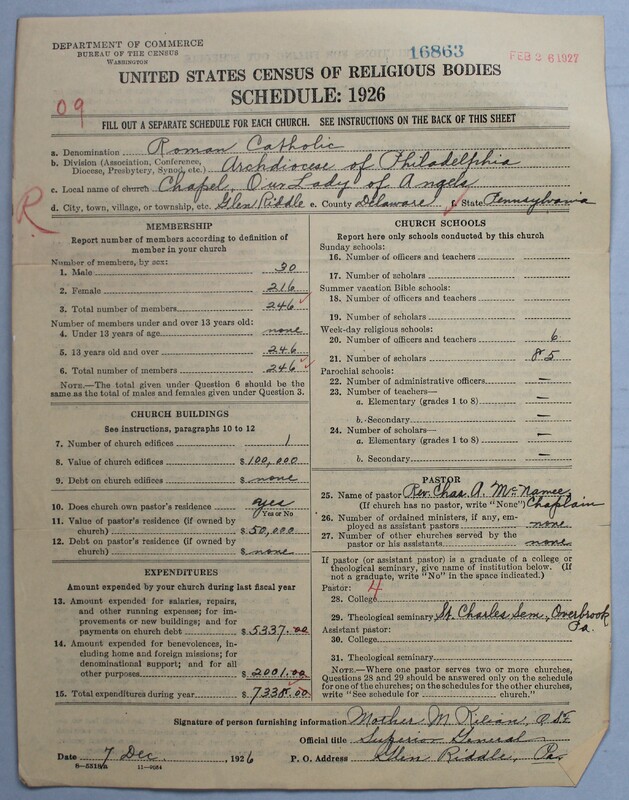 DEPARTMENT OF COMMERCE
BUREAU OF THE CENSUS
WASHINGTON
16863
FEB 26 1927
UNITED STATES CENSUS OF RELIGIOUS BODIES
SCHEDULE: 1926
09
FILL OUT A SEPARATE SCHEDULE FOR EACH CHURCH. SEE INSTRUCTIONS ON THE BACK OF THIS SHEET
a. Denomination Roman Catholic
b. Division (Association, Conference, Diocese, Presbytery, Synod, etc.) Archdiocese of Philadelphia
c. Local name of church Chapel, Our Lady of Angels
d. City, town, village, or township, etc. Glen Riddle e. County Delaware f. State Pennsylvania
R
MEMBERSHIP
Report number of members according to definition of
member in your church
Number of members, by sex:
1. Male 30
2. Female 216
3. Total number of members 246
Number of members under and over 13 years old:
4. Under 13 years of age none
5. 13 years old and over 246
6. Total number of members 246
NOTE.—The total given under Question 6 should be the
same as the total of males and females given under Question 3.
CHURCH BUILDINGS
See instructions, paragraphs 10 to 12
7. Number of church edifices 1
8. Value of church edifices $100,000
9. Debt on church edifices $ none
10. Does church own pastor's residence yes
Yes or No
11. Value of pastor's residence (if owned by
church) $50,000
12. Debt on pastor's residence (if owned by
church) $ none
EXPENDITURES
Amount expended by your church during last fiscal year
13. Amount expended for salaries, repairs,
and other running expenses; for im-
provements or new buildings; and for
payments on church debt $5337.00
14. Amount expended for benevolences, in-
cluding home and foreign missions; for
denominational support; and for all
other purposes $2001.00
15. Total expenditures during year $7338.00
CHURCH SCHOOLS
Report here only schools conducted by this church
Sunday schools:
16. Number of officers and teachers
17. Number of scholars
Summer vacation Bible schools:
18. Number of officers and teachers
19. Number of scholars
Week-day religious schools:
20. Number of officers and teachers 6
21. Number of scholars 85
Parochial schools:
22. Number of administrative officers —
23. Number of teachers—
a. Elementary (grades 1 to 8) —
b. Secondary —
24. Number of scholars—
a. Elementary (grades 1 to 8) —
b. Secondary —
PASTOR
25. Name of pastor Rev. Chas. A. McNamee,
(If church has no pastor, write "None") Chaplain
26. Number of ordained ministers, if any, em-
ployed as assistant pastors none
27. Number of other churches served by the
pastor or his assistants none
If pastor (or assistant pastor) is a graduate of a college or
theological seminary, give name of institution below. (If
not a graduate, write "No" in the space indicated.)
Pastor: 4
28. College
29. Theological seminary St. Charles Sem., Overbrook
Pa.
Assistant pastor:
30. College
31. Theological seminary
NOTE.—Where one pastor serves two or more churches,
Questions 28 and 29 should be answered only on the schedule
for one of the churches; on the schedules for the other churches,
write "See schedule for church."
Signature of person furnishing information Mother M. Kilian, O.S.F.
Official title Superior General
Date 7 Dec., 1926 P. O. Address Glen Riddle, Pa.